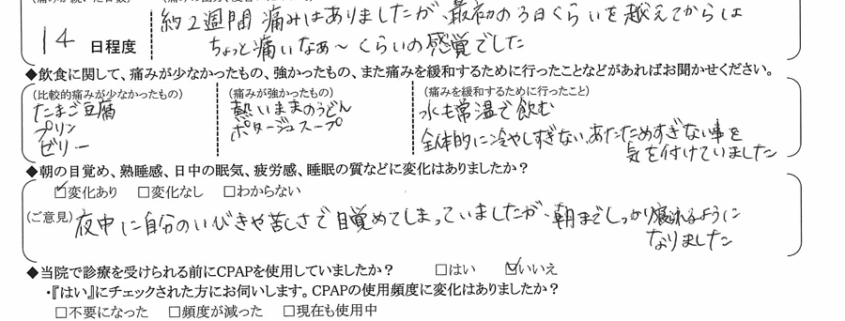 14 日程度
約2週間痛みはありましたが、最初の3日くらいを越えてからは
ちょっと痛いなぁ〜くらいの感覚でした
◆飲食に関して、痛みが少なかったもの、強かったもの、また痛みを緩和するために行ったことなどがあればお聞かせください。
(比較的痛みが少なかったもの) (痛みが強かったもの) (痛みを緩和するために行ったこと)
たまご豆腐 熱いままのうどん 水も常温で飲む
プリン ポタージュスープ
ゼリー 全体的に冷やしすぎない、あたためすぎない事を
気を付けていました
◆朝の目覚め、熟睡感、日中の眠気、疲労感、睡眠の質などに変化はありましたか？
☑変化あり □変化なし □わからない
(ご意見) 夜中に自分のいびきや苦しさで目覚めてしまっていましたが、朝までしっかり寝れるように
なりました
◆当院で診療を受けられる前にCPAPを使用していましたか？ □はい ☑いいえ
・『はい』にチェックされた方にお伺いします。CPAPの使用頻度に変化はありましたか？
□不要になった □頻度が減った □現在も使用中